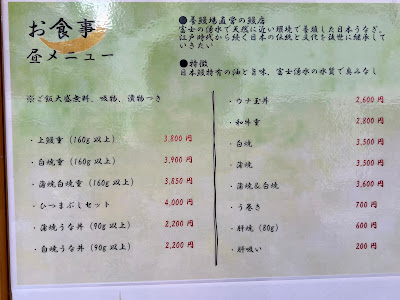 お食事
昼メニュー
●養鰻場直営の鰻店
富士の湧水で天然に近い環境で養殖した日本うなぎ。
江戸時代から続く日本の伝統と文化を後世に継承して
いきたい
●特徴
日本鰻特有の油と旨味、富士湧水の水質で臭みなし
※ご飯大盛無料、吸物、漬物つき
・上鰻重(160g以上) 3,800円
・白焼重(160g以上) 3,900円
・蒲焼白焼重(160g以上) 3,850円
・ひつまぶしセット 4,000円
・蒲焼うな丼(90g以上) 2,200円
・白焼うな丼(90g以上) 2,200円
・ウナ玉丼 2,600円
・和牛重 2,800円
・白焼 3,500円
・蒲焼 3,500円
・蒲焼&白焼 3,600円
・う巻き 700円
・肝焼(80g) 600円
・肝吸い 200円